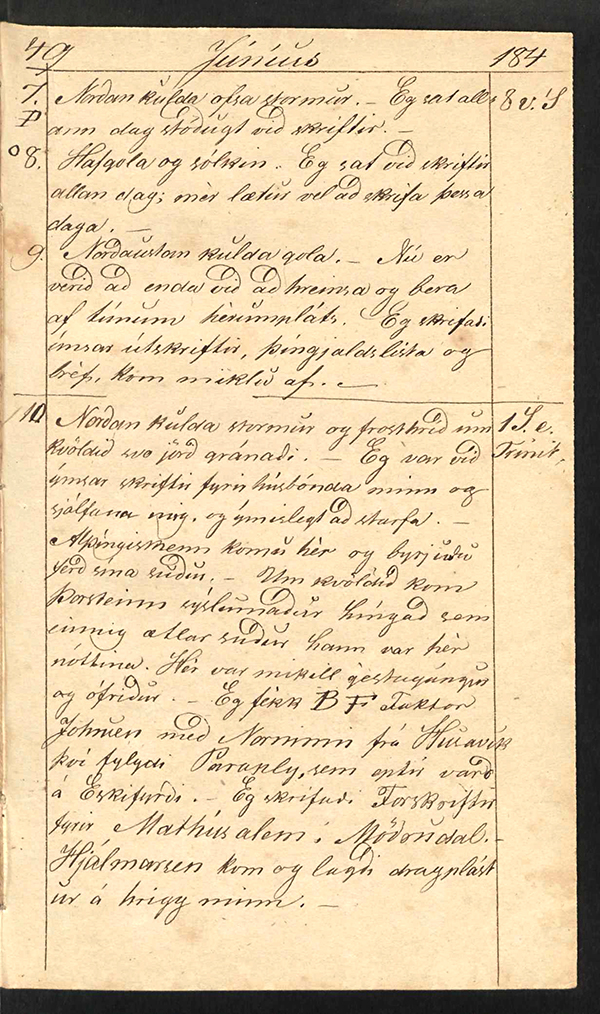 49 Júníus 184
7. Nordan kulda ofsa stormur. – Eg sat all- 8 v. S
P ann dag stödugt vid skriftir. –
8. Hafgola og sólskin. Eg sat vid skriftir
allan dag; mèr lætur vel ad skrifa þessa
daga. –
9. Nordaustan kulda gola. – Nú er
verid ad enda vid ad hreinsa og bera
af túnum hèrumpláts. Eg skrifadi
ímsar útskriftir, þíngjaldslista og
brèf, kom miklu af. –
10 Nordan kulda stormur og frosthríd um 1 S. e.
kvöldid svo jörd gránadi. – Eg var vid Trínit,
ýmsar skriftir fyrir húsbónda minn og
sjálfann mig, og ýmislegt ad starfa. –
Alþíngismenn komu hèr og byrjudu
ferd sína sudur. – Um kvöldid kom
Þorsteinn sýslumadur híngad sem
einnig ætlar sudur hann var hèr
nóttina. Hèr var mikill gestagángur
og ófridur. – Eg fèkk B F Faktor
Johnsen med Norninni frá Húsavík
því fylgdi Paraply, sem eptir vard
á Eskifyrdi. – Eg skrifadi Forskriftir
fyrir Mathúsalem í Mödrudal. –
Hjálmarsen kom og lagdi dragplást
ur á hrigg minn. –